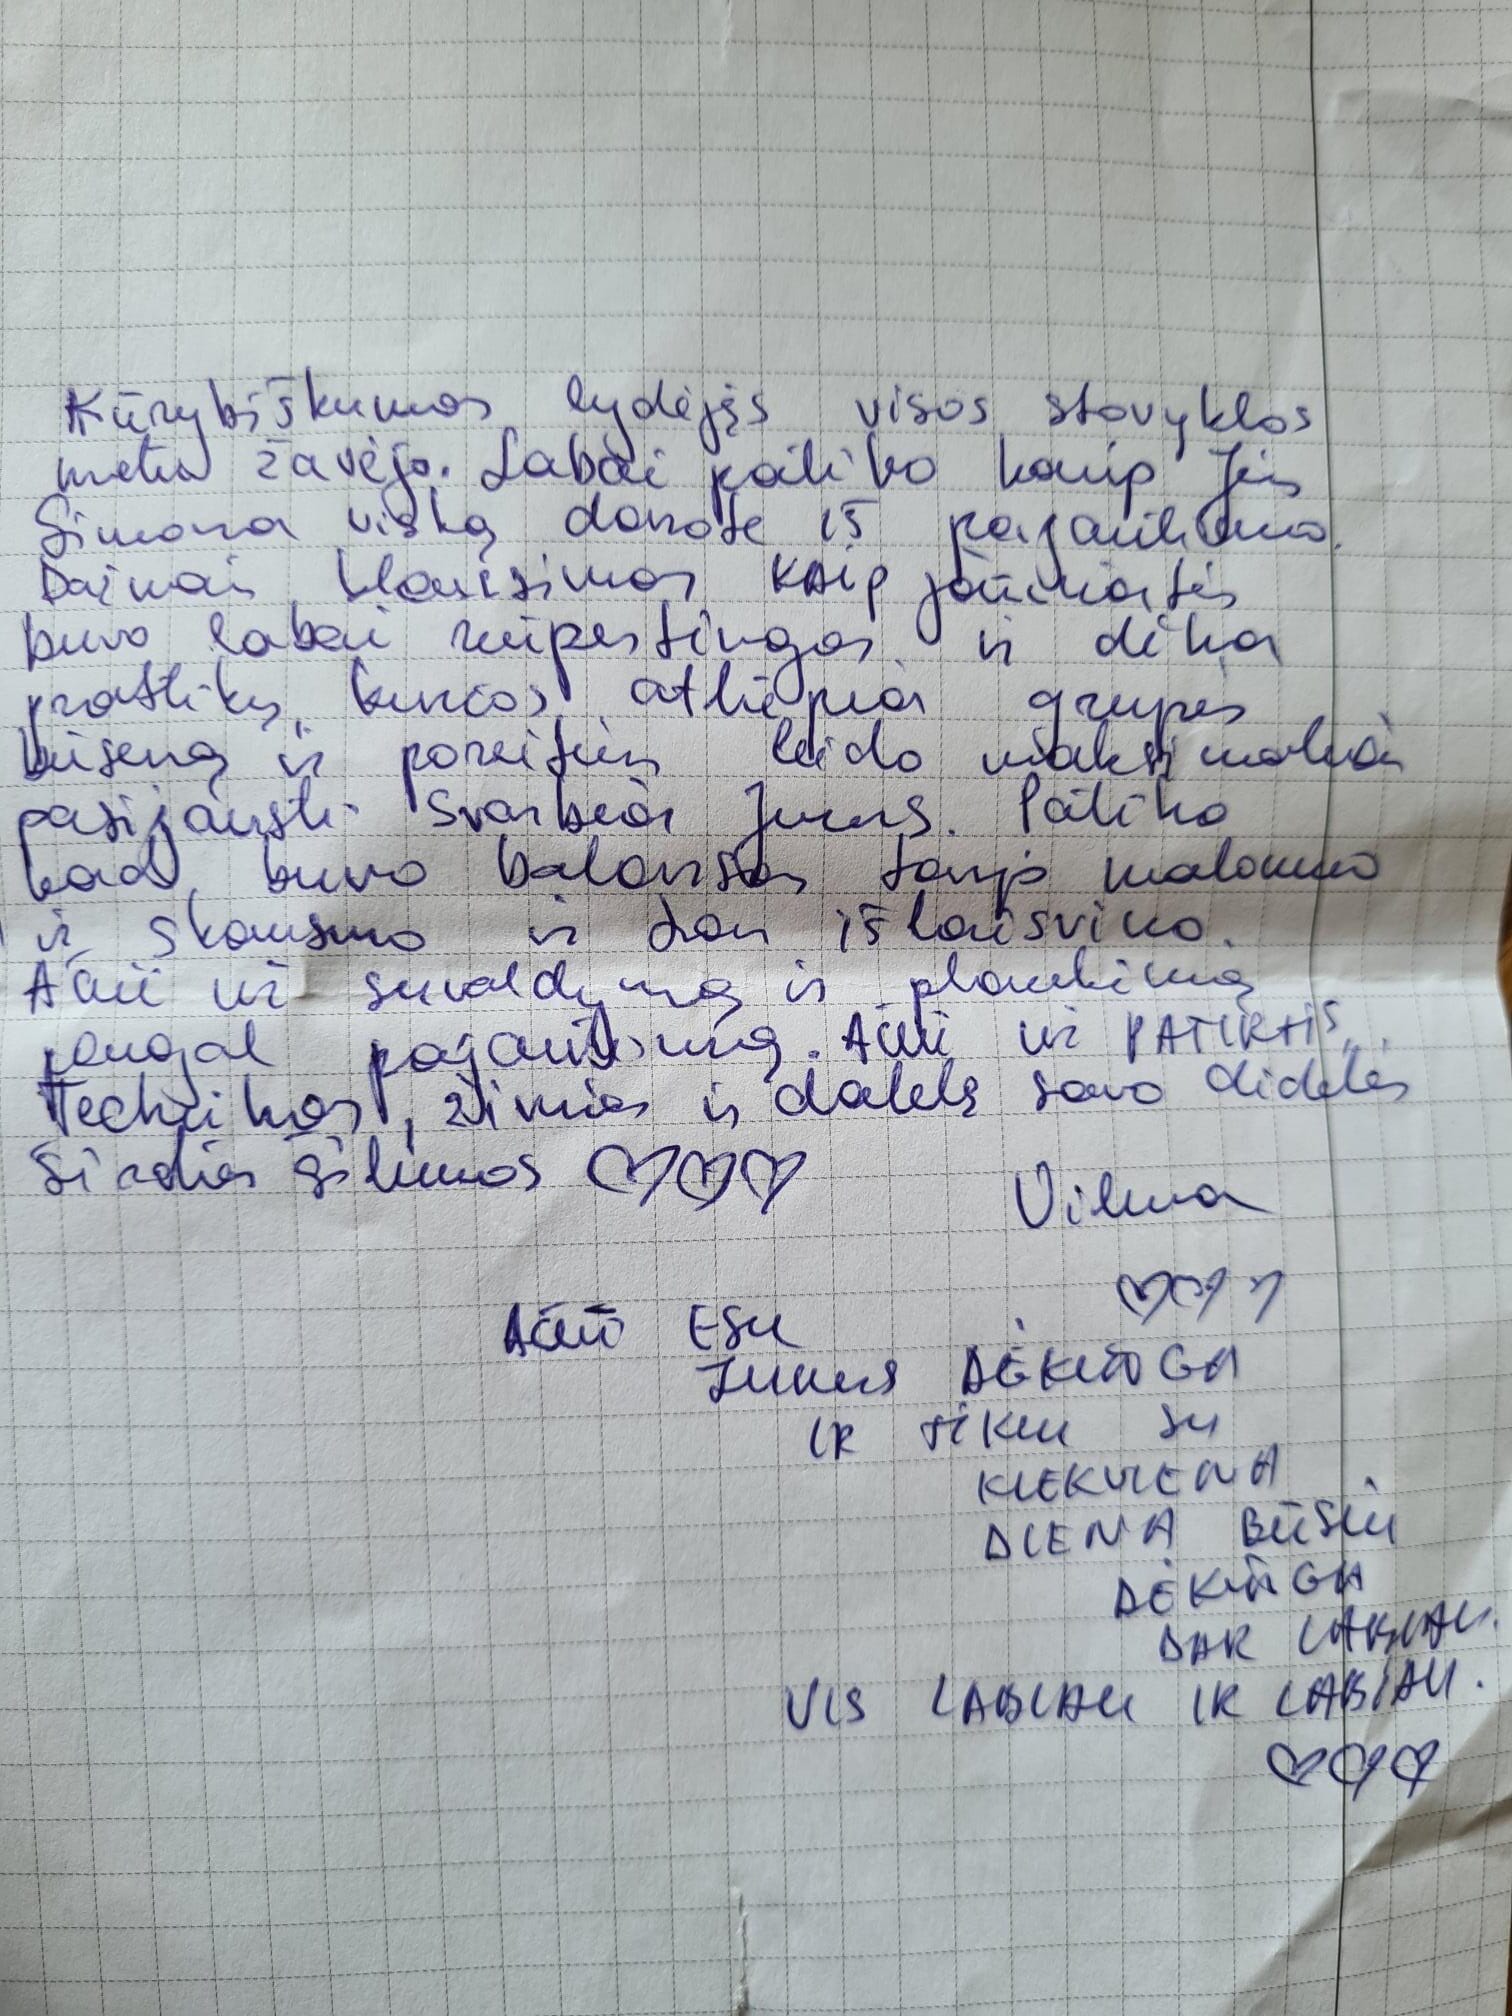 Kūrybiškumas lydėjęs visos stovyklos
metu žavėjo. Labai patiko kaip Jūs
Simona viską darote iš pajautimo.
Dažnas klausimas KAIP jaučiatės
buvo labai rūpestingas ir dėka
praktikų, kurios atliepia grupės
būseną ir poreikius leido maksimaliai
pasijausti svarbiai Jums. Patiko
kad buvo balansas tarp malonumo
ir skausmo ir tai išlaisvino.
Ačiū už suvaldymą ir plaukimą
pagal pajautimą. Ačiū už PATIRTIS,
Technikas, žinias ir dalelę savo didelės
širdies šilumos ♡♡♡
Vilma
♡♡♡
AČIŪ ESU
Jums DĖKINGA
IR TIKIU SU
KIEKVIENA
DIENA BŪSIU
DĖKINGA
DAR LABIAU.
VIS LABIAU IR LABIAU.
♡♡♡